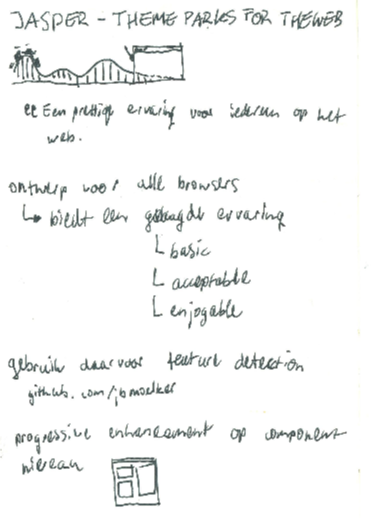 JASPER - THEME PARKS FOR THE WEB
Een prettige ervaring voor iedereen op het
web.
ontwerp voor alle browsers
biedt een gelaagde ervaring
basic
acceptable
enjoyable
gebruik daarvoor feature detection
github.com/jbmoelker
progressive enhancement op component
niveau